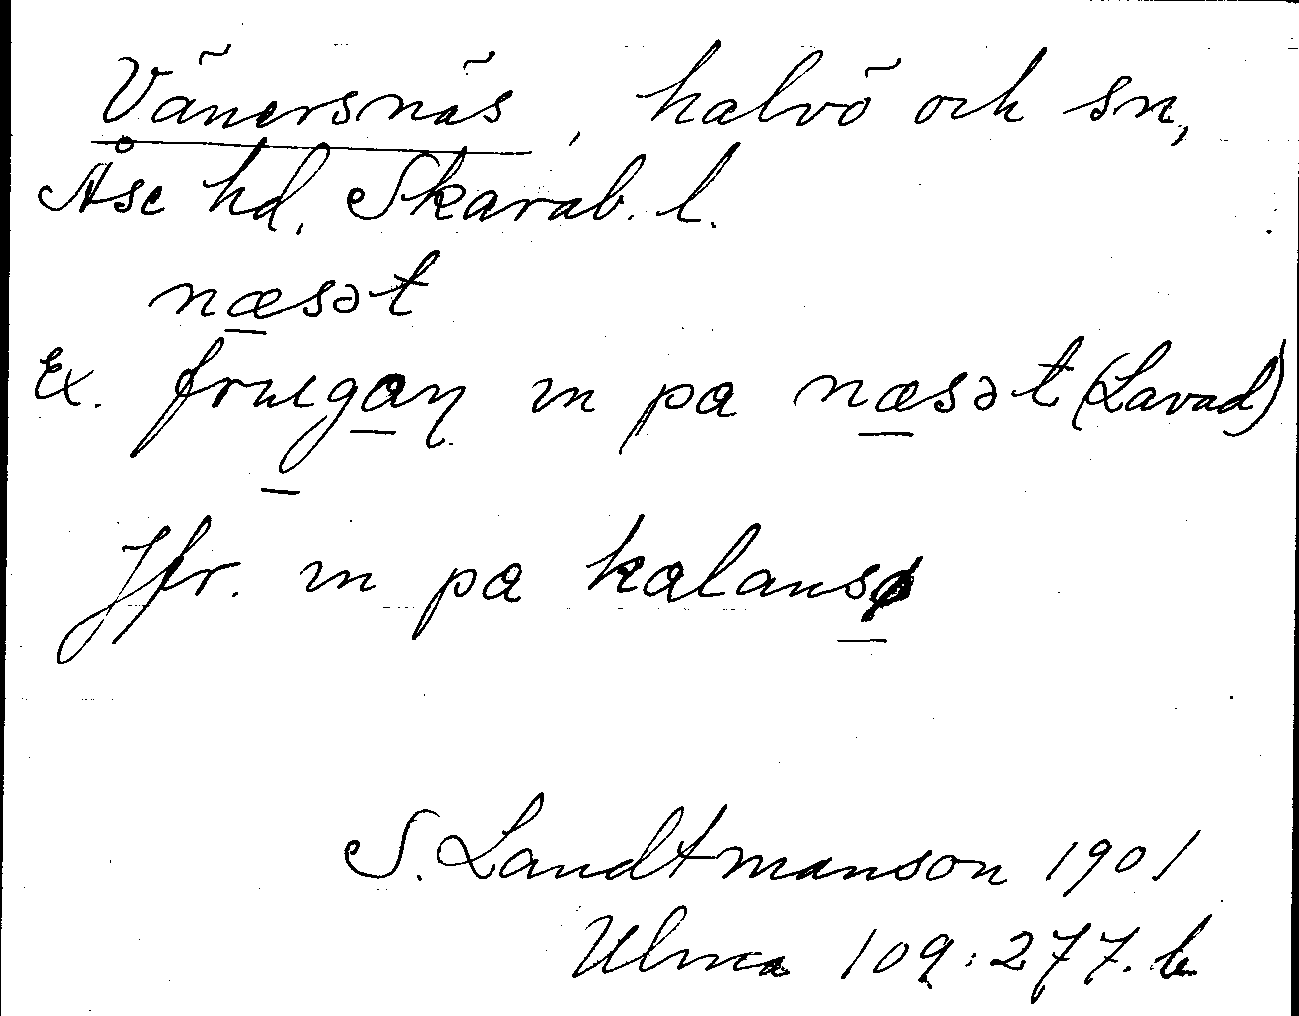 Vänersnäs, halvö och sn,
Åse hd, Skarab. l.
næsət
Ex. på næsət (Lavad)
Jfr. på kalansø
S. Landtmanson 1901
Ulma 109:277.b